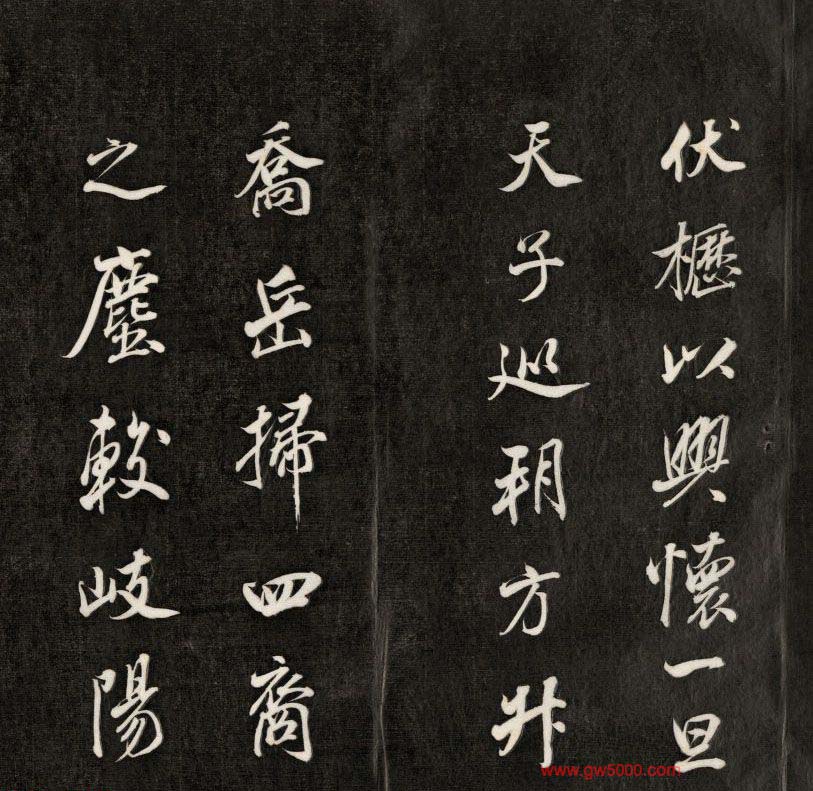 伏櫪以興懷一旦
天子巡朔方升
喬岳掃四裔
之塵較岐陽
www.gw5000.com